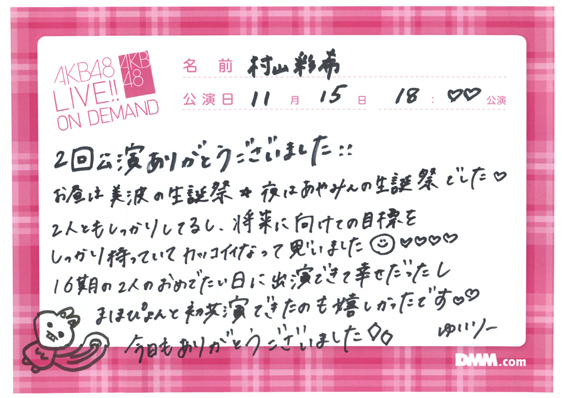 AKB48
LIVE!!
ON DEMAND
AKB
48
名前 村山彩希
公演日 11月15日 18:♡♡公演
2回公演ありがとうございました!!
お昼は美波の生誕祭★夜はあやみんの生誕祭でした♡
2人ともしっかりしてるし、将来に向けての目標を
しっかり持っていてカッコイイなって思いました☺♡♡♡♡
16期の2人のおめでたい日に出演できて幸せだったし
まほぴょんと初共演できたのも嬉しかったです♡♡
今日もありがとうございました◇◇ ゆいりー
DMM.com